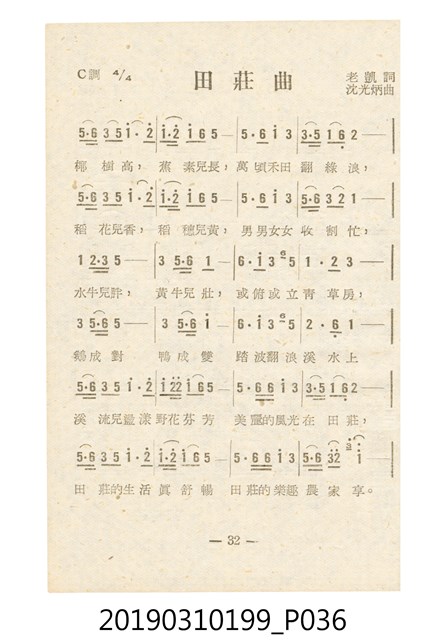 C調 4/4
田莊曲
老凱詞
沈光炳曲
5·6 3 5 i · 2 | i·2 i 6 5 — | 5 · 6 i 3 | 3·5 1 6 2 —
椰樹高，蕉素兒長，萬頃禾田翻綠浪，
5·6 3 5 i · 2 | i·2 i 6 5 — | 5 · 6 i 3 | 5·6 3 2 1 —
稻花兒香，稻穗兒黃，男男女女收割忙，
1 2·3 5 — | 3 5·6 1 — | 6 · i 3 5 | 1 · 2 3 —
水牛兒胖，黃牛兒壯，或俯或立靑草房，
3 5·6 5 — | 3 5·6 i — | 6 · i 3 5 | 2 · 6 1 —
鵝成對 鴨成雙 踏波翻浪溪水上
5·6 3 5 i · 2 | i 2 2 i 6 5 — | 5·6 6 i 3 | 3·5 1 6 2 —
溪流兒蕩漾野花芬芳 美麗的風光在田莊，
5·6 3 5 i · 2 | i·2 i 6 5 — | 5 · 6 6 i 3 | 5·6 3 2 i —
田莊的生活眞舒暢 田莊的樂趣農家享。
— 32 —
20190310199_P036